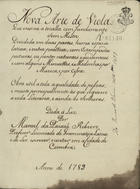 Nova Arte de Viola
Que ensina a tocalla com fundamento
sem Mestre
Dividida em duas partes, huma especu-
lativa, e outra practica; com Estampas
das posturas, ou pontos naturaes, e accidentaes
e com alguns Minuettes, e Modinhas por
Musica, e por Cifra.
Obra util a toda a qualidade de pessoas;
e muito principalmente ás que seguem a
vida litteraria, e ainda ás Senhoras.
Dada a Luz
Por
Manoel da Paixão Ribeiro
Professor Licenciado de Grammatica Latina
de Ler escrever e contar em a Cidade de
Coimbra.
Anno de 1789